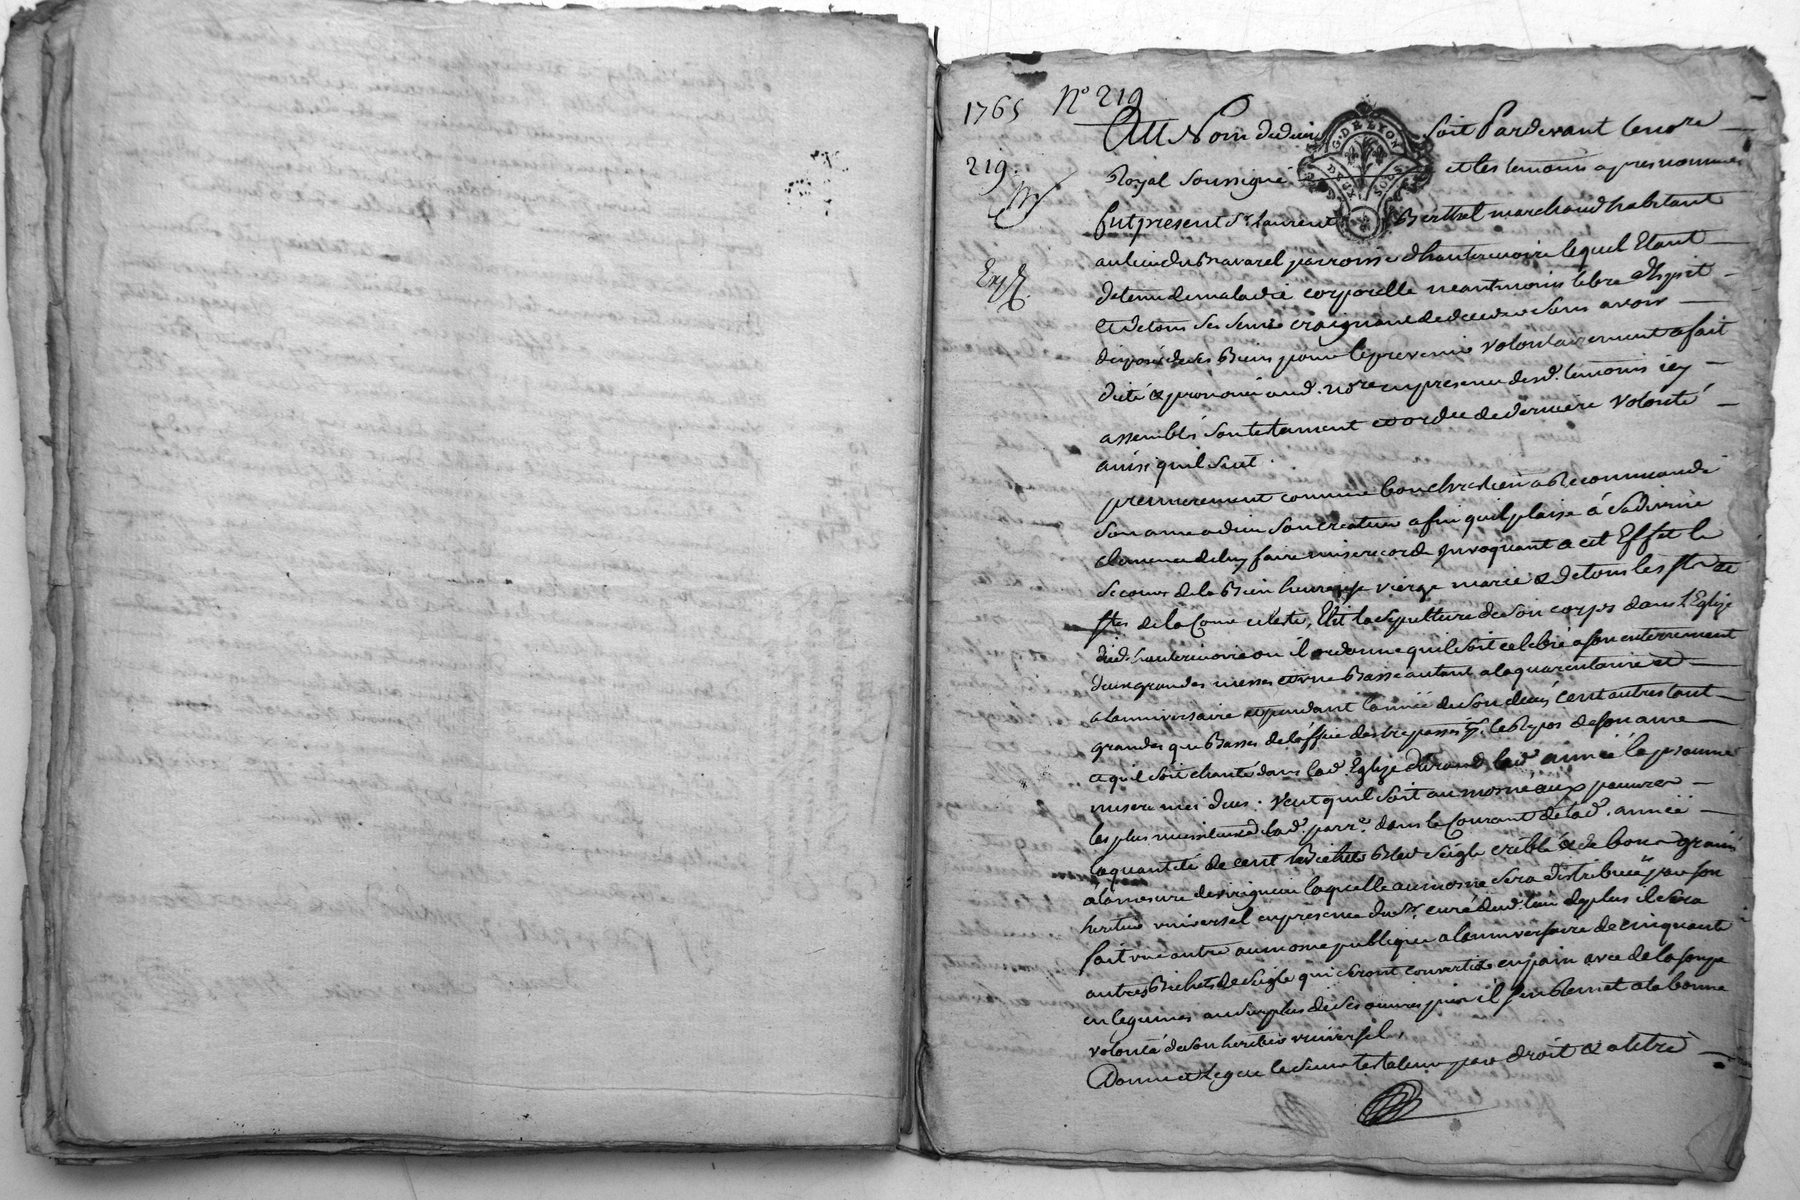 1765 N° 219
219.
Exp.
G. DE LYON
Au Nom de dieu soit Pardevant le nore
Royal soussigné et les temoins apres nommés
fut present Sr. Laurent Berthel marchand habitant
au lieu du Bavarel parroisse d'hauterivoire lequel Etant
detenu de maladie corporelle neantmoins libre d'Esprit
et de tous ses sens craignant de deceder sans avoir
disposé de ses Biens pour le prevenir volontairement a fait
dicté & prononcé aud. nore en presence desd. temoins icy
assemblés son testament et ordre de derniere volonté
ainsi quil suit.
premierement comme bon chretien a Recommandé
son ame a dieu son createur afin quil plaise á sa divine
clemence de luy faire misericorde Jnvoquant a cet Effet le
secours de la Bien heureuse vierge marie & de tous les sts &
stes de la Cour celeste, Elit la sepulture de son corps dans l'Eglise
dud. hauterivoire ou il ordonne quil soit celebré a son enterrement
deux grandes messes et une Basse autant a la quarentaine et
a l'anniversaire et pendant l'année de son deces cent autres tant
grandes que Basses de l'office des trepassés pr. le Repos de son ame
et quil soit chanté dans lad. Eglise durand lad. année le pseaume
miserere mei deus. Veut quil soit aumosné aux pauvres
les plus necessiteux de lad. parre. dans le Courant de lad. année
la quantité de cent Bichets Bled seigle criblé & de bon grain
a la mesure de virigneu laquelle aumosne sera distribuée par son
heritier universel en presence du Sr. curé dud. lieu de plus il sera
fait une autre aumosne publique a l'anniversaire de cinquante
autres Bichets de seigle qui seront convertis en pain avec de la soupe
en legumes au surplus de ses œuvres pies il s'en Remet a la bonne
volonté de son heritier universel
Donne et Legue le sieur testateur par droit & a titre